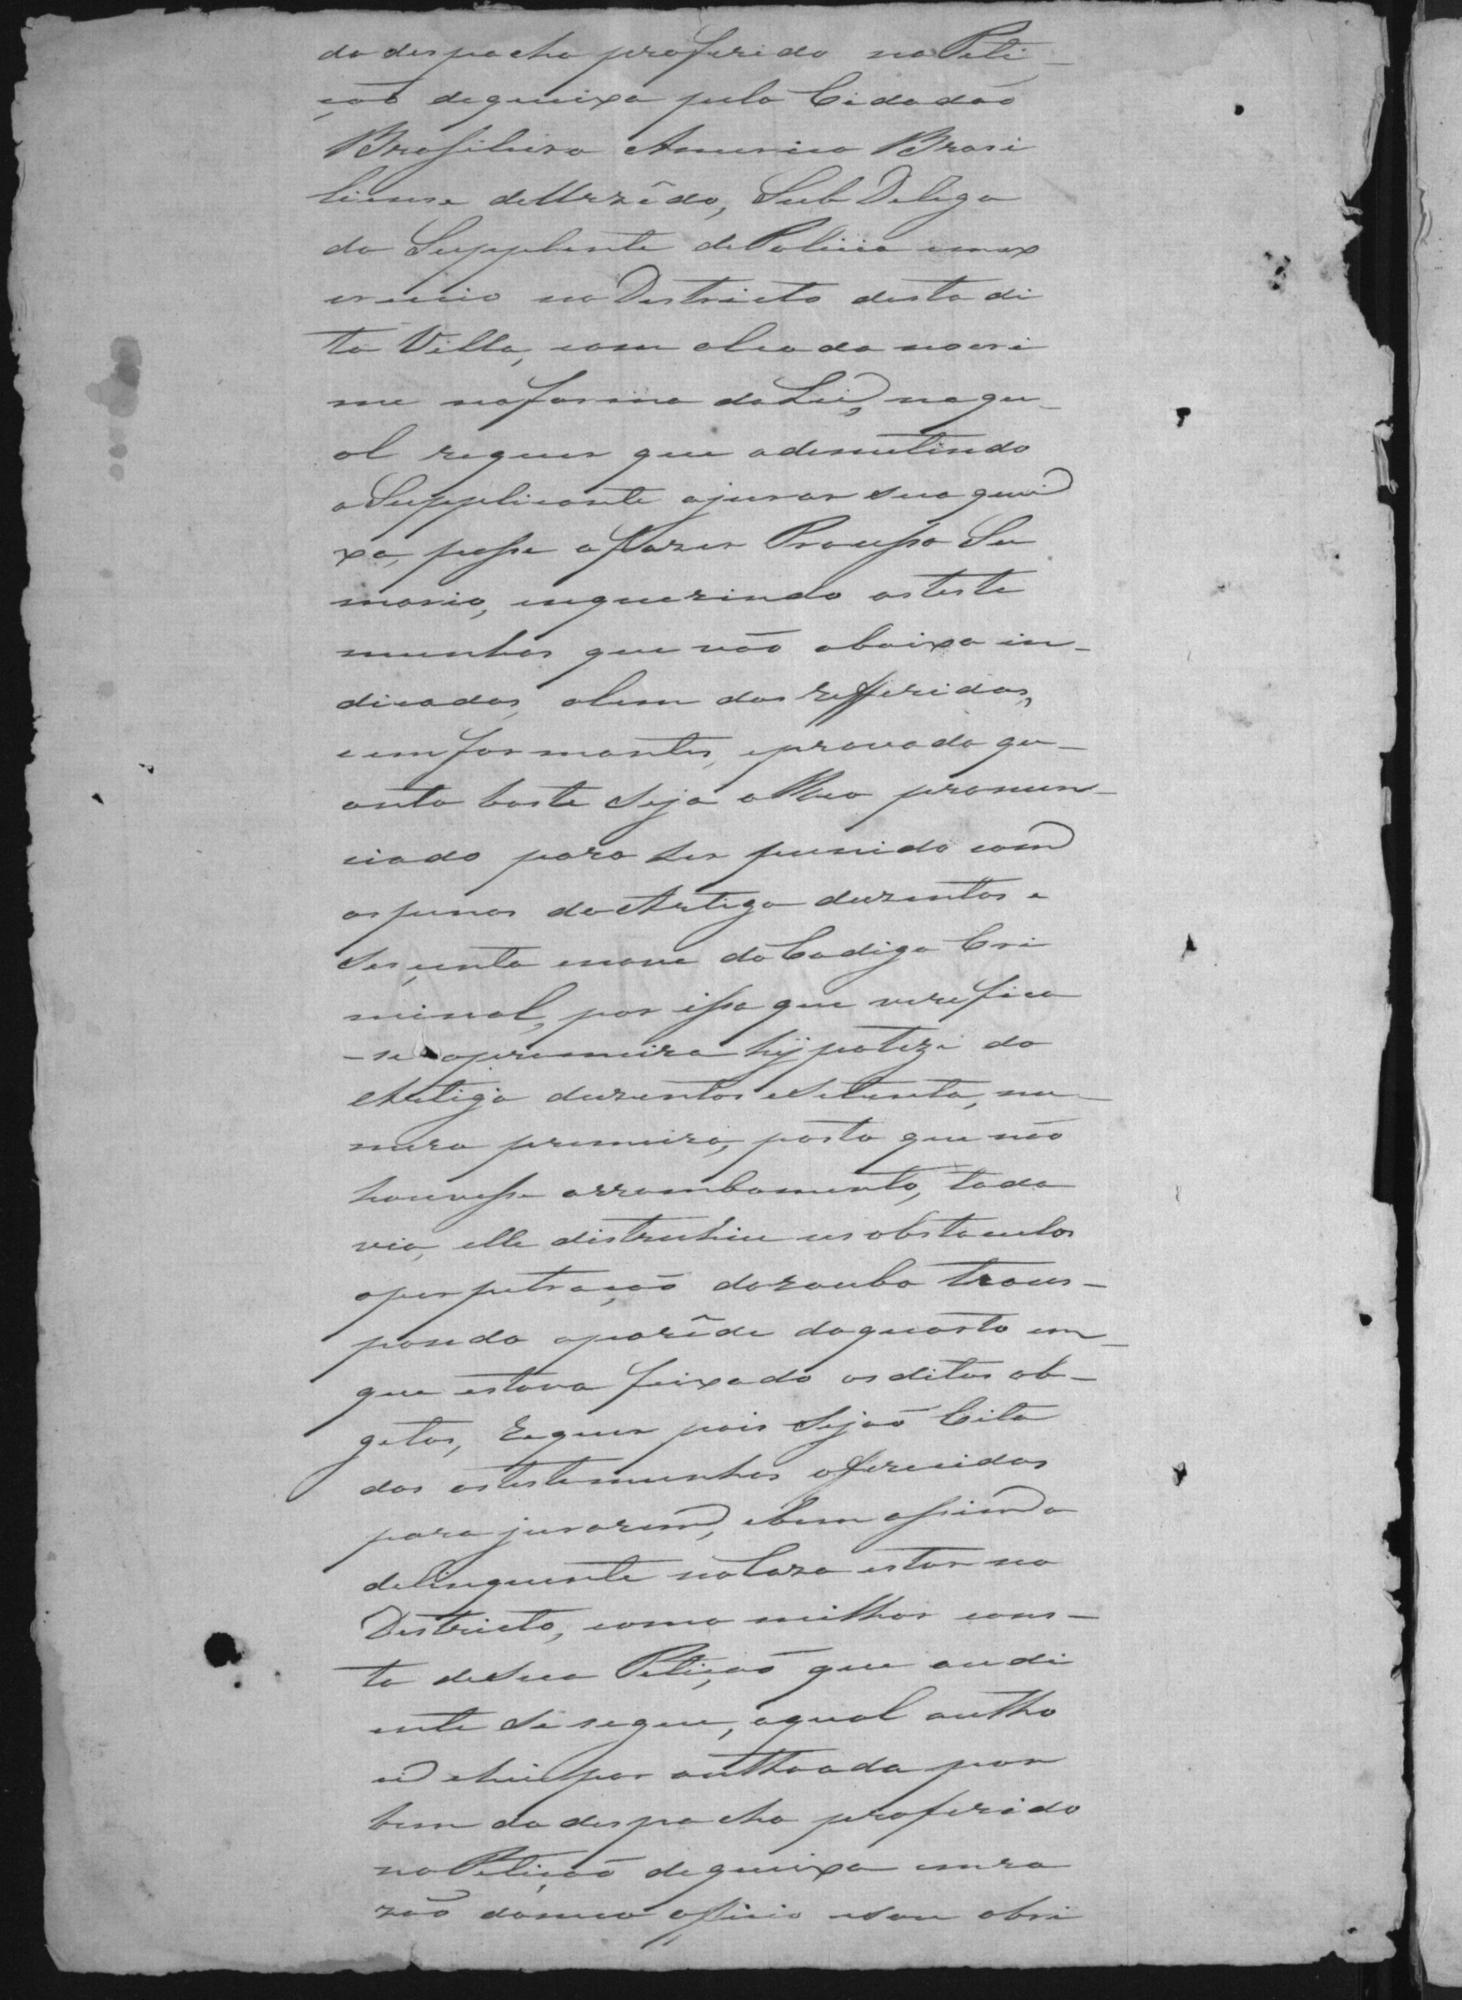 do despacho proferido na Peti-
ção de queixa pelo Cidadão
Brasileiro Americo Brasi
liense de Urzêdo, Sub Delega
do Supplente de Policia em ex
ercicio no Districto desta di
ta Villa, com alçada no cri
me na forma da Lei, na qu-
al requer que ademetindo
o Supplicante a jurar sua quei
xa, passe a fazer Processo Su
mario, enquerindo as teste
munhas que vão abaixo in-
dicadas, alem das refferidas,
e emformantes, e provado qu-
anto baste seja o Reo pronun-
ciado para ser punido com
as penas do Artigo duzentos e
seçenta e nove do Codigo Cri
minal, por isso que verefica
-se a premeira hypoteze do
Artigo duzentos e setenta, nu-
mero premeiro, posto que não
houvesse arrombamento, toda
via, elle distruhiu os obstaculos
a perpetração do roubo trans-
pondo a parêde do quarto em-
que estava feixado os ditos ob-
getos, Requer pois sejão Cita
das as testemunhas oferecidas
para jurarem, e bem assim o
delinquente no Cazo estar no
Districto, como milhor cons-
ta de sua Petição que audi
ente se segue, a qual autho
ei e hei por authoada por
bem do despacho proferido
na Petição de queixa em ra
zão do meu officio e sou obri